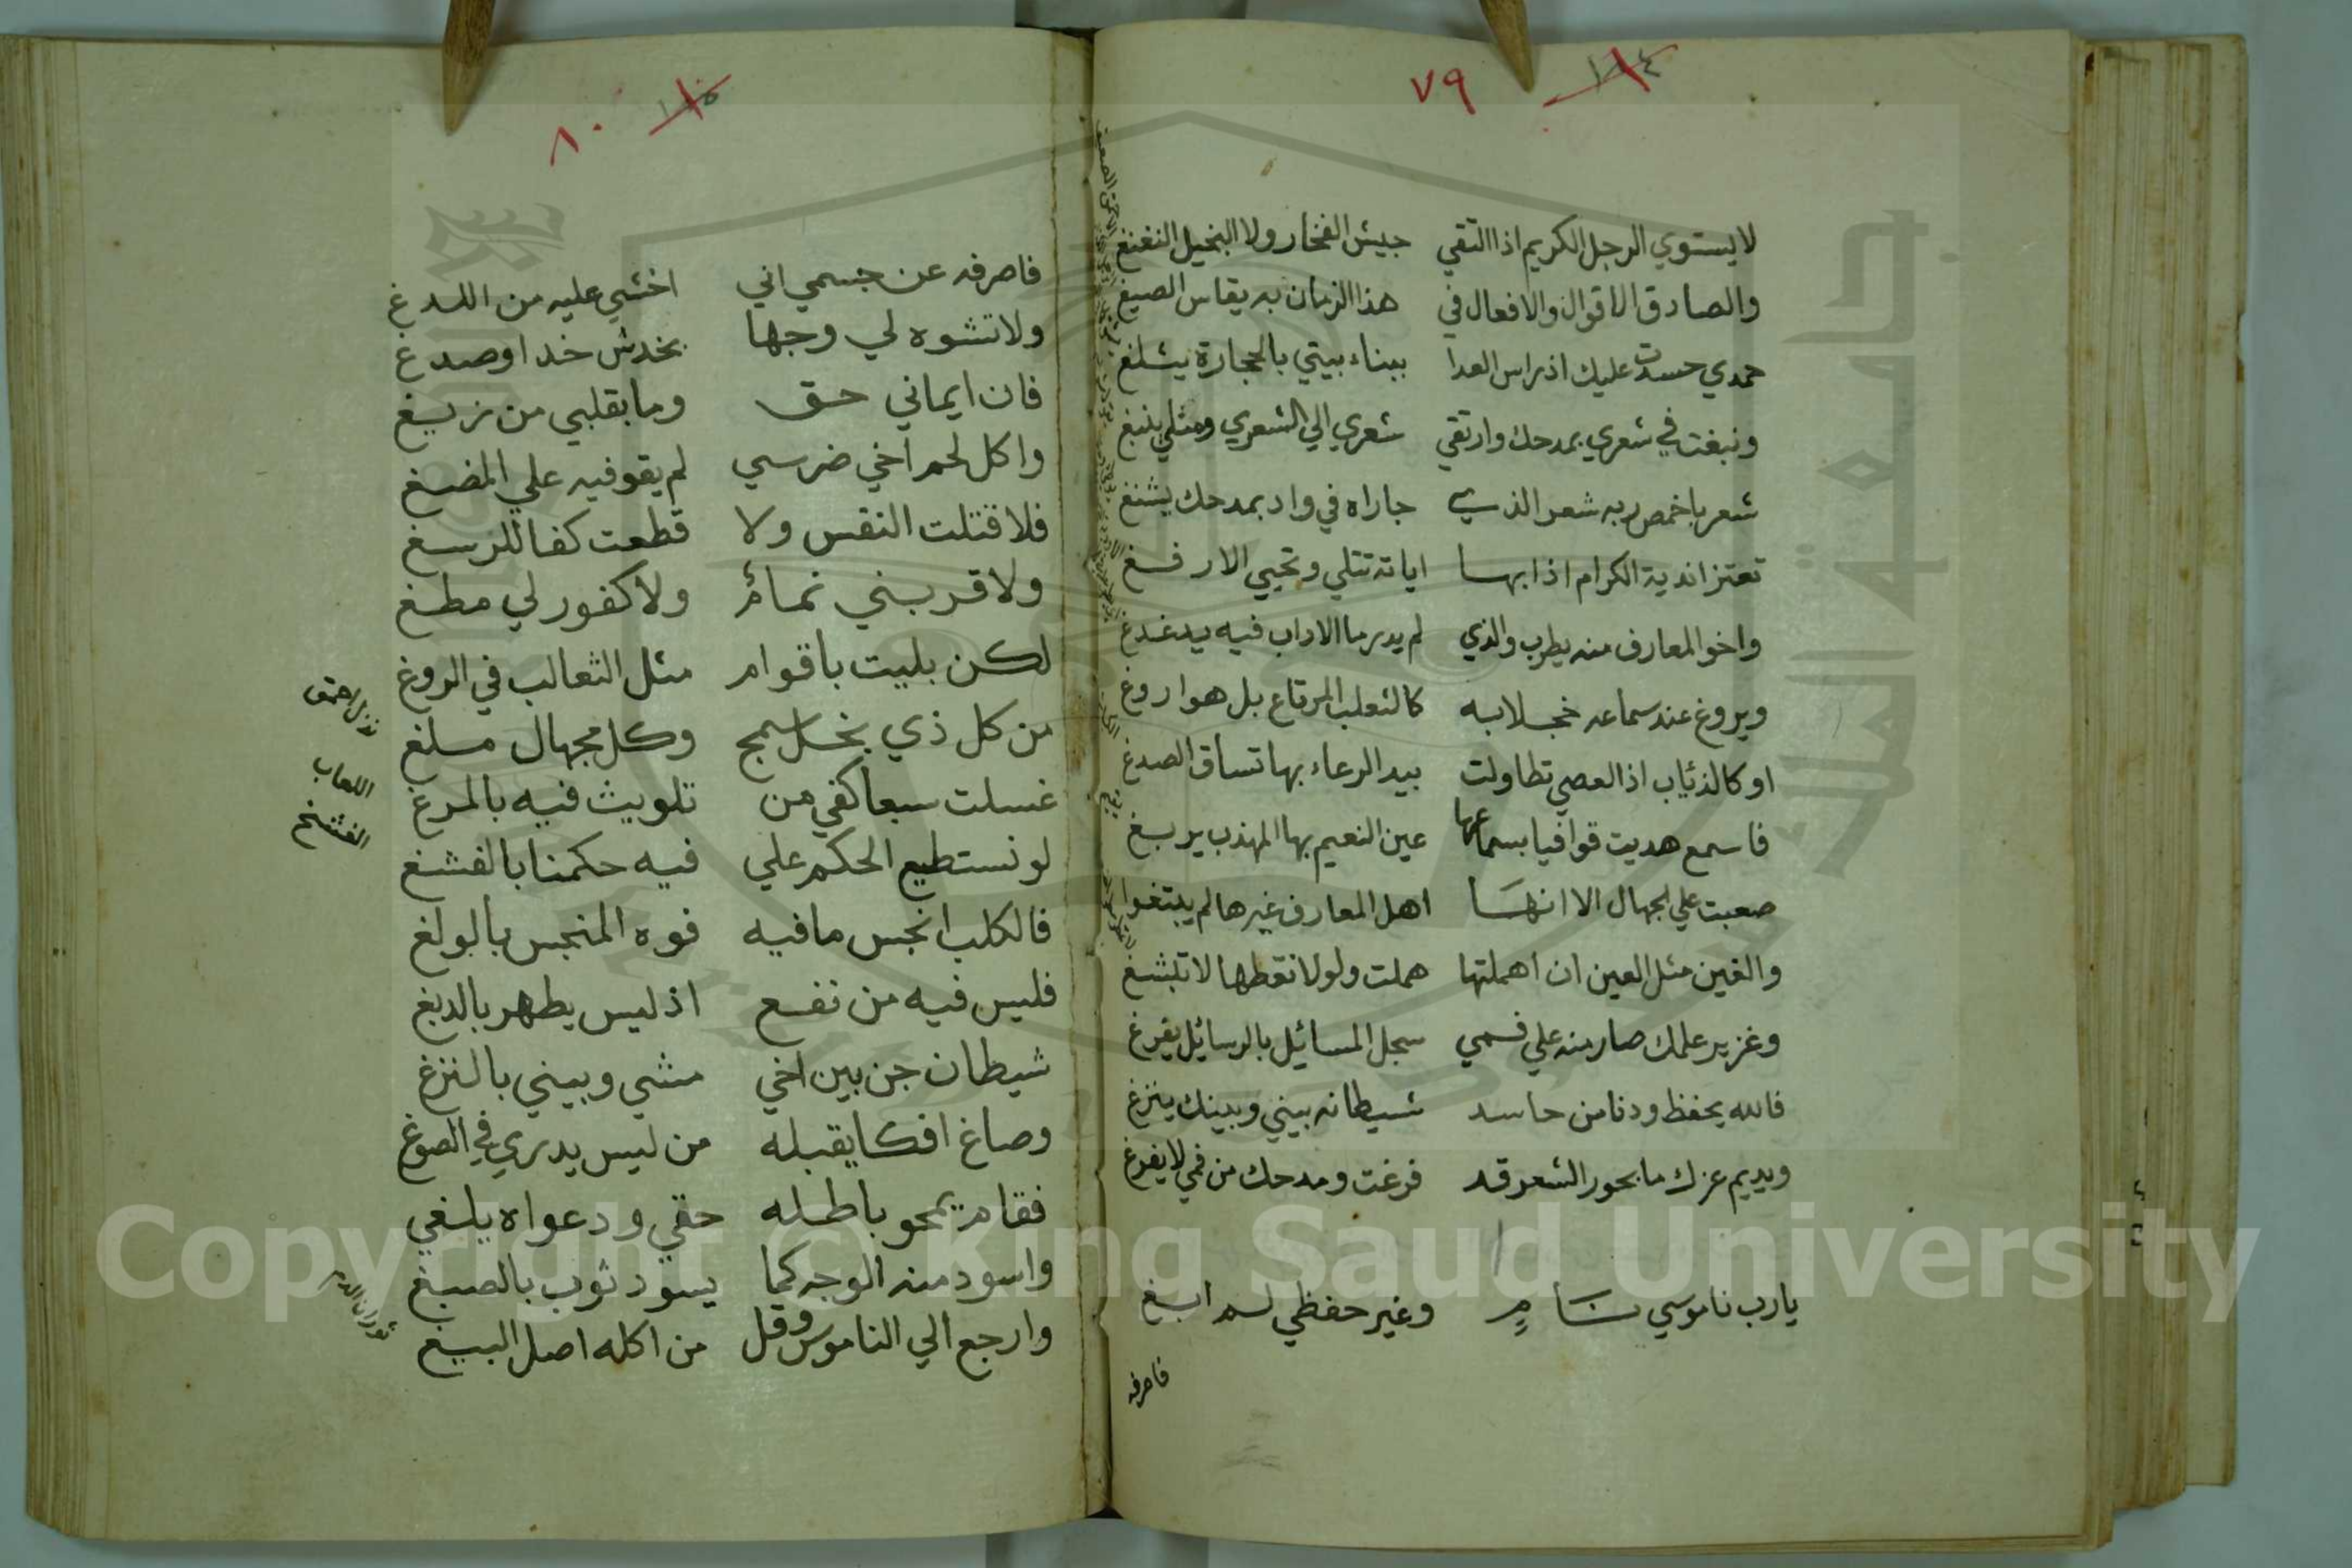 ٧٩
لا يستوي الرجل الكريم اذا التقي جيش الفخار ولا البخيل النغنغ
والصادق الاقوال والافعال في هذا الزمان به يقاس الصيغ
حمدي حسدت عليك اذ راس العدا ببناء بيتي بالحجارة يثلغ
ونبغت في شعري بمدحك وارتقي شعري الي الشعري ومثلي ينبغ
شعر باخمص ربه شعر الذي جاراه في واد بمدحك يشنغ
تعتز اندية الكرام اذا بها اياته تتلي وتحيي الارفغ
واخو المعارف منه يطرب والذي لم يدر ما الاداب فيه يدغدغ
ويروغ عند سماعه خجلا به كالثعلب المرتاع بل هو اروغ
او كالذئاب اذا العصي تطاولت بيد الرعاء بها تساق الصدغ
فاسمع هديت قوافيا بسماعها عين النعيم بها المهذب يربغ
صعبت علي الجهال الا انها اهل المعارف غيرها لم يبتغوا
والغين مثل العين ان اهملتها هملت ولولا نقطها لا تبشغ
وغزير علمك صار منه علي فمي سجل المسائل بالرسائل يفرغ
فالله يحفظ ودنا من حاسد شيطانه بيني وبينك ينزغ
ويديم عزك ما بحور الشعر قد فرغت ومدحك من فمي لا يفرغ
يارب ناموسي سام وغير حفظي لم ابغ
فاصرفه
٨٠
فاصرفه عن جسمي اني اخشي عليه من اللدغ
ولا تشوه لي وجها بخدش خد او صدغ
فان ايماني حق وما بقلبي من زيغ
واكل لحم اخي ضرسي لم يقو فيه علي المضغ
فلا قتلت النفس ولا قطعت كفا للرسغ
ولا قربني نمام ولا كفور لي مطغ
لكن بليت باقوام مثل الثعالب في الروغ
من كل ذي بخل سمج وكل مجهال ملغ
غسلت سبعا كفي من تلويث فيه بالمرغ
لو نستطيع الحكم علي فيه حكمنا بالفشغ
فالكلب انجس ما فيه فوه المنجس بالولغ
فليس فيه من نفع اذ ليس يطهر بالدبغ
شيطان جن بين اخي مشي وبيني بالنزغ
وصاغ افكا يقبله من ليس يدري في الصوغ
فقام يمحو باطله حقي ودعواه يلغي
واسود منه الوجه كما يسود ثوب بالصبغ
وارجع الي الناموس وقل من اكله اصل البيغ
نذل احمق
اللعاب
الفشخ
ثوران الدم
Copyright © King Saud University
جامعة الملك سعود